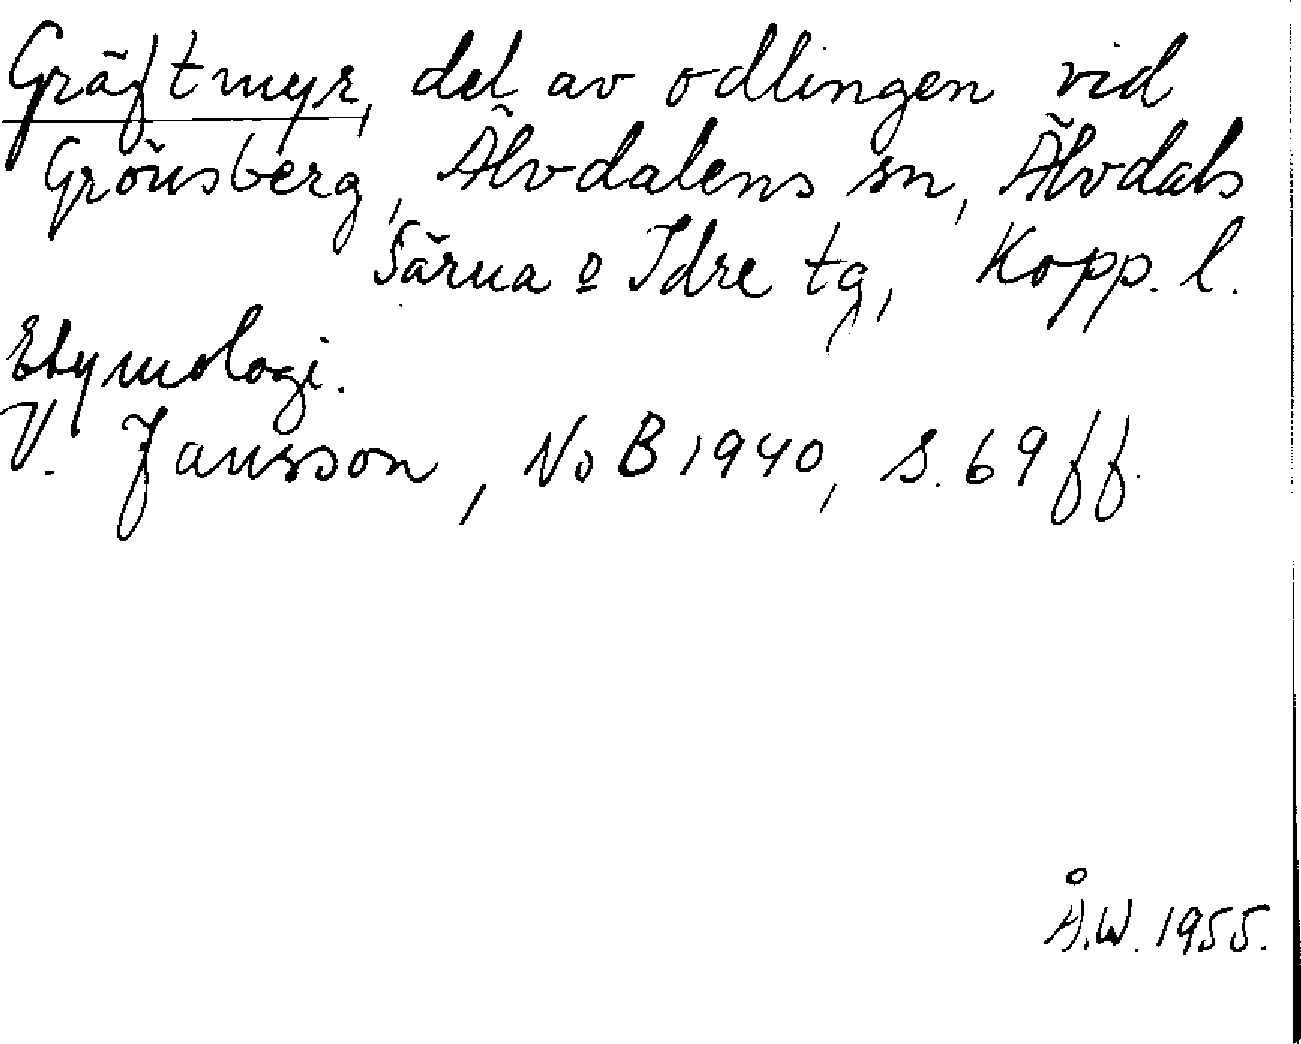 Gräftmyr, del av odlingen vid
Grönsberg, Älvdalens sn, Älvdals
Särna o Idre tg, Kopp. l.
Etymologi.
V. Jansson, NoB 1940, s. 69 ff.
Å.W. 1955.